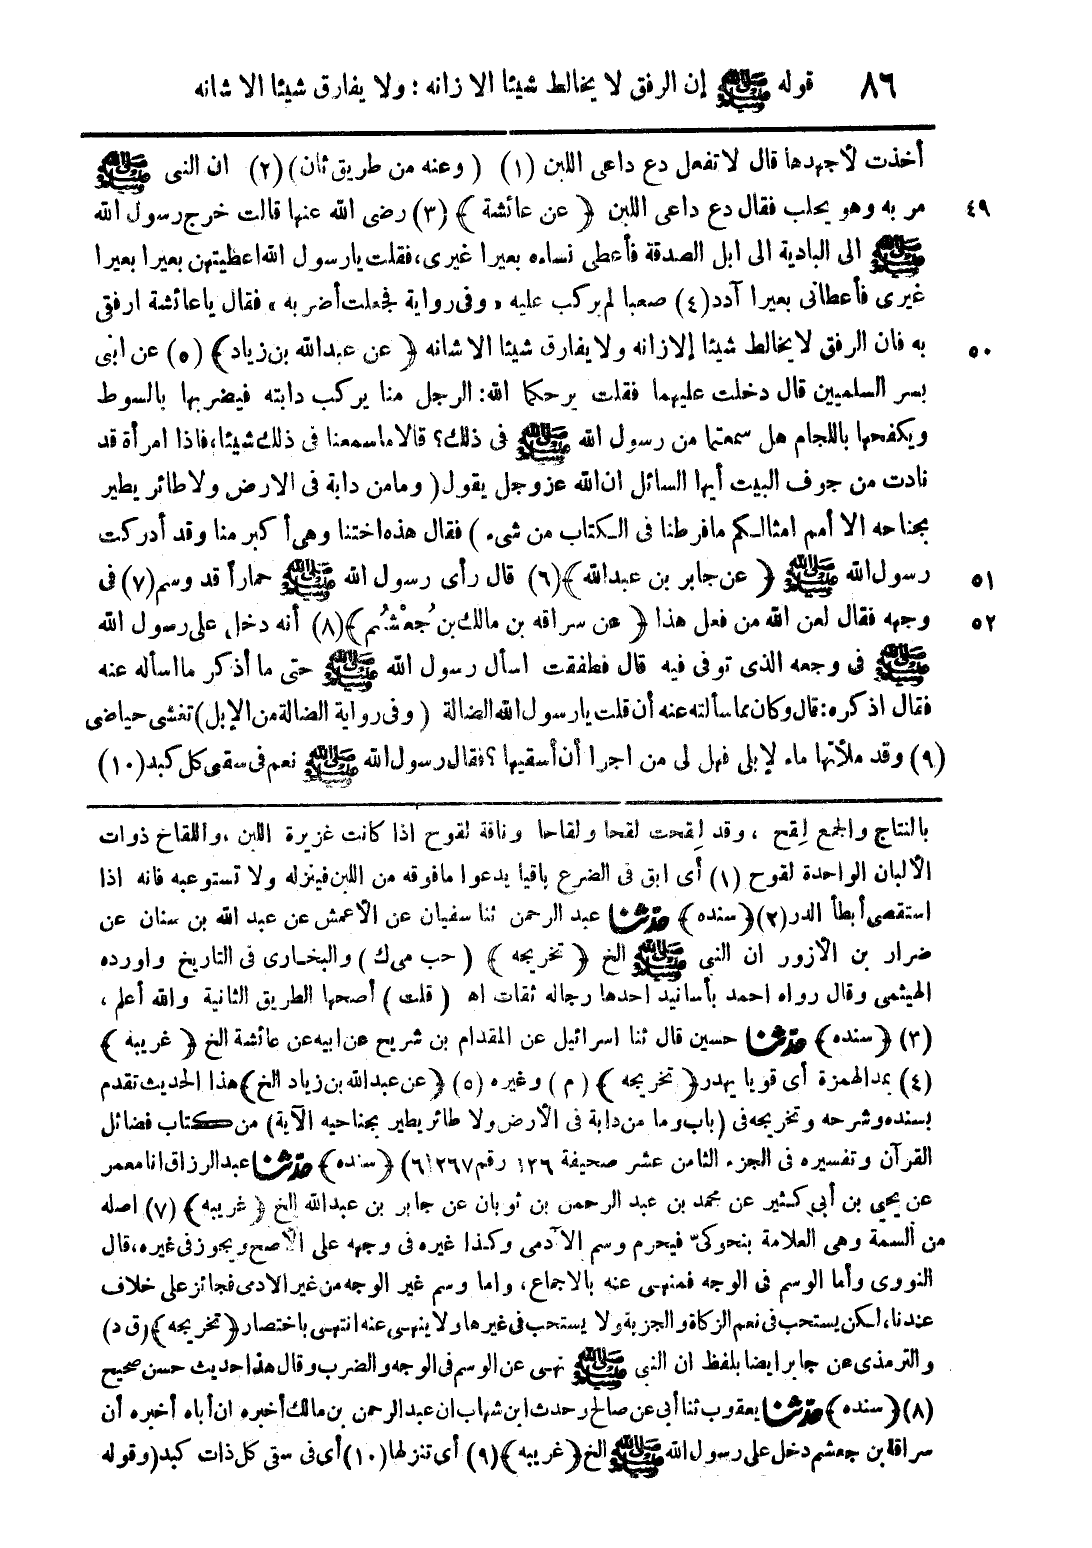 ٨٦ قوله ﷺ إن الرفق لا يخالط شيئا الا زانه : ولا يفارق شيئا الا شانه
أخذت لأجهدها قال لا تفعل دع داعى اللبن (١) ( وعنه من طريق ثان ) (٢) ان النبى ﷺ
٤٩ مر به وهو يحلب فقال دع داعى اللبن ﴿ عن عائشة ﴾ (٣) رضى الله عنها قالت خرج رسول الله
ﷺ الى البادية الى ابل الصدقة فأعطى نساءه بعيرا غيرى، فقلت يارسول الله اعظيتهن بعيرا بعيرا
غيرى فأعطانى بعيرا آدد (٤) صعبا لم يركب عليه « وفى رواية فجعلت أضربه » فقال ياعائشة ارفقى
٥٠ به فان الرفق لا يخالط شيئا إلا زانه ولا يفارق شيئا الا شانه ﴿ عن عبدالله بن زياد ﴾ (٥) عن ابنى
بسر السلميين قال دخلت عليهما فقلت يرحمكما الله: الرجل منا يركب دابته فيضربها بالسوط
ويكفحها باللجام هل سمعتما من رسول الله ﷺ فى ذلك؟ قالا ماسمعنا فى ذلك شيئا، فاذا امرأة قد
نادت من جوف البيت أيها السائل ان الله عز وجل يقول ( ومامن دابة فى الارض ولا طائر يطير
بجناحه الا أمم امثالكم مافرطنا فى الكتاب من شىء ) فقال هذه اختنا وهى أكبر منا وقد أدركت
٥١ رسول الله ﷺ ﴿ عن جابر بن عبدالله ﴾ (٦) قال رأى رسول الله ﷺ حماراً قد وسم (٧) فى
٥٢ وجهه فقال لعن الله من فعل هذا ﴿ عن سراقه بن مالك بن جُعْشُم ﴾ (٨) أنه دخل على رسول الله
ﷺ فى وجعه الذى توفى فيه قال فطفقت اسأل رسول الله ﷺ حتى ما أذكر ما اسأله عنه
فقال اذكره: قال وكان مما سألته عنه أن قلت يارسول الله الضالة ( وفى رواية الضالة من الإبل ) تغشى حياضى
(٩) وقد ملأتها ماء لإبلى فهل لى من اجر ا أن أسقيها ؟ فقال رسول الله ﷺ نعم فى سقى كل كبد (١٠)
بالنتاج والجمع لِقَح ، وقد لِقحت لقحا ولقاحا وناقة لقوح اذا كانت غزيرة اللبن ، واللقاح ذوات
الألبان الواحدة لقوح (١) أى ابق فى الضرع باقيا يدعوا مافوقه من اللبن فينزله ولا تستوعبه فانه اذا
استقصى أبطأ الدر (٢) ﴿ سنده ﴾ حدّثنا عبد الرحمن ثنا سفيان عن الأعمش عن عبد الله بن سنان عن
ضرار بن الأزور ان النبى ﷺ الخ ﴿ تخريجه ﴾ ( حب مى ك ) والبخارى فى التاريخ واورده
الهيثمى وقال رواه احمد بأسانيد احدها رجاله ثقات اه ( قلت ) أصحها الطريق الثانية والله أعلم ،
(٣) ﴿ سنده ﴾ حدّثنا حسين قال ثنا اسرائيل عن المقدام بن شريح عن ابيه عن عائشة الخ ﴿ غريبه ﴾
(٤) بمد الهمزة أى قويا يهدر ﴿ تخريجه ﴾ ( م ) وغيره (٥) ﴿ عن عبدالله بن زياد الخ ﴾ هذا الحديث تقدم
بسنده وشرحه وتخريجه فى (باب وما من دابة فى الأرض ولا طائر يطير بجناحيه الآية) من كتاب فضائل
القرآن وتفسيره فى الجزء الثامن عشر صحيفة ١٣٦ رقم ٢٦٧ (٦) ﴿ سنده ﴾ حدّثنا عبدالرزاق انا معمر
عن يحيى بن أبى كثير عن محمد بن عبد الرحمن بن ثوبان عن جابر بن عبدالله الخ ﴿ غريبه ﴾ (٧) اصله
من السمة وهى العلامة بنحو كىّ فيحرم وسم الآدمى وكذا غيره فى وجهه على الأصح ويجوز فى غيره، قال
النووى وأما الوسم فى الوجه فمنهى عنه بالاجماع، واما وسم غير الوجه من غير الادمى فجائز على خلاف
عندنا، لكن يستحب فى نعم الزكاة والجزية ولا يستحب فى غيرها ولا ينهى عنه انتهى باختصار ﴿ تخريجه ﴾ (ق د)
والترمذى عن جابر ايضا بلفظ ان النبى ﷺ نهى عن الوسم فى الوجه والضرب وقال هذا حديث حسن صحيح
(٨) ﴿ سنده ﴾ حدّثنا يعقوب ثنا أبى عن صالح وحدث ابن شهاب ان عبد الرحمن بن مالك أخبره ان أباه أخبره أن
سراقة بن جعشم دخل على رسول الله ﷺ الخ ﴿ غريبه ﴾ (٩) أى تنزلها (١٠) أى فى سقى كل ذات كبد (وقوله